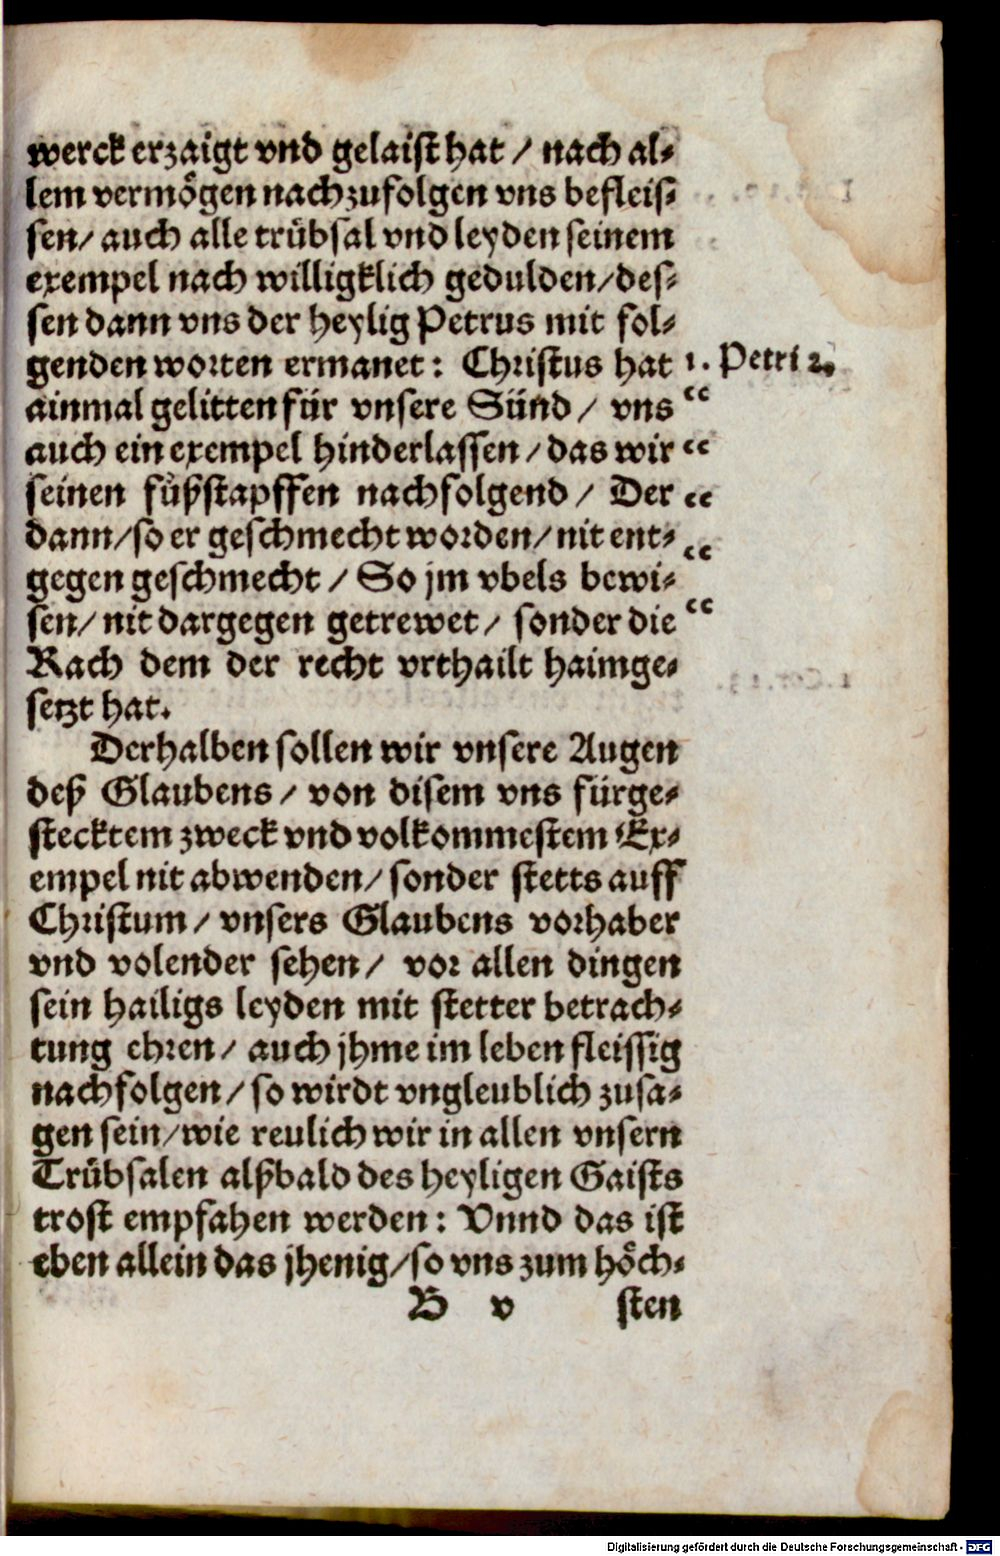 werck erzaigt vnd gelaist hat / nach al⸗
lem vermögen nachzufolgen vns befleis⸗
sen / auch alle trübsal vnd leyden seinem
exempel nach willigklich gedulden / des⸗
sen dann vns der heylig Petrus mit fol⸗
genden worten ermanet: Christus hat 1. Petri 2.
ainmal gelitten für vnsere Sünd / vns “
auch ein exempel hinderlassen / das wir “
seinen fůßstapffen nachfolgend / Der “
dann / so er geschmecht worden / nit ent⸗ “
gegen geschmecht / So jm vbels bewi⸗
sen / nit dargegen getrewet / sonder die “
Rach dem der recht vrthailt haimge⸗
setzt hat.
Derhalben sollen wir vnsere Augen
deß Glaubens / von disem vns fürge⸗
stecktem zweck vnd volkommestem Ex⸗
empel nit abwenden / sonder stetts auff
Christum / vnsers Glaubens vorhaber
vnd volender sehen / vor allen dingen
sein hailigs leyden mit stetter betrach⸗
tung ehren / auch jhme im leben fleissig
nachfolgen / so wirdt vngleublich zusa⸗
gen sein / wie reulich wir in allen vnsern
Trübsalen alßbald des heyligen Gaists
trost empfahen werden: Vnnd das ist
eben allein das jhenig / so vns zum höch⸗
B v sten
Digitalisierung gefördert durch die Deutsche Forschungsgemeinschaft - DFG